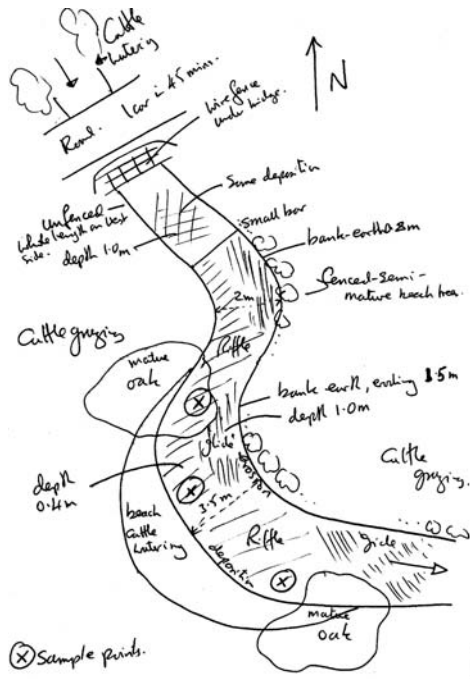 Cattle
watering
Road. 1 car in 45 mins.
wire fence
under bridge.
N
Some deposition
unfenced
whole length on west
side.
depth 1.0m
small bar
bank-earth 0.8m
2m
fenced-semi-
mature beech trees.
Cattle grazing
mature
oak
Riffle
X
bank earth, eroding 1.5m
depth 1.0m
glide
erosion
Cattle
grazing.
depth
0.4m
X
3.5m
beach
Cattle
watering
deposition
Riffle
glide
X
mature
oak
X Sample points.